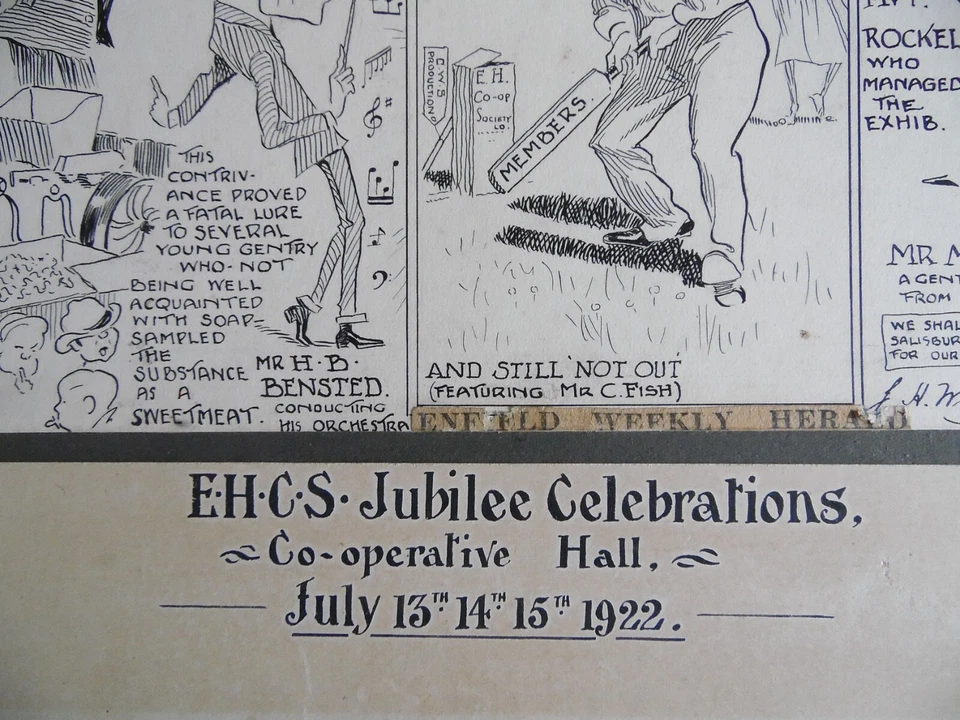 THIS
CONTRIV-
ANCE PROVED
A FATAL LURE
TO SEVERAL
YOUNG GENTRY
WHO-NOT
BEING WELL
ACQUAINTED
WITH SOAP-
SAMPLED
THE
SUBSTANCE
AS A
SWEETMEAT.
MR H·B·
BENSTED.
CONDUCTING
HIS ORCHESTRA
C.W.S
PRODUCTION
E.H.
CO-OP
SOCIETY
LD.
MEMBERS.
AND STILL 'NOT OUT'
(FEATURING MR C.FISH)
ROCKEL
WHO
MANAGED
THE
EXHIB.
MR M
AGENT
FROM
WE SHAL
SALISBUR
FOR OUR
ENFIELD WEEKLY HERALD
E·H·C·S· Jubilee Celebrations,
Co-operative Hall,
July 13TH 14TH 15TH 1922.